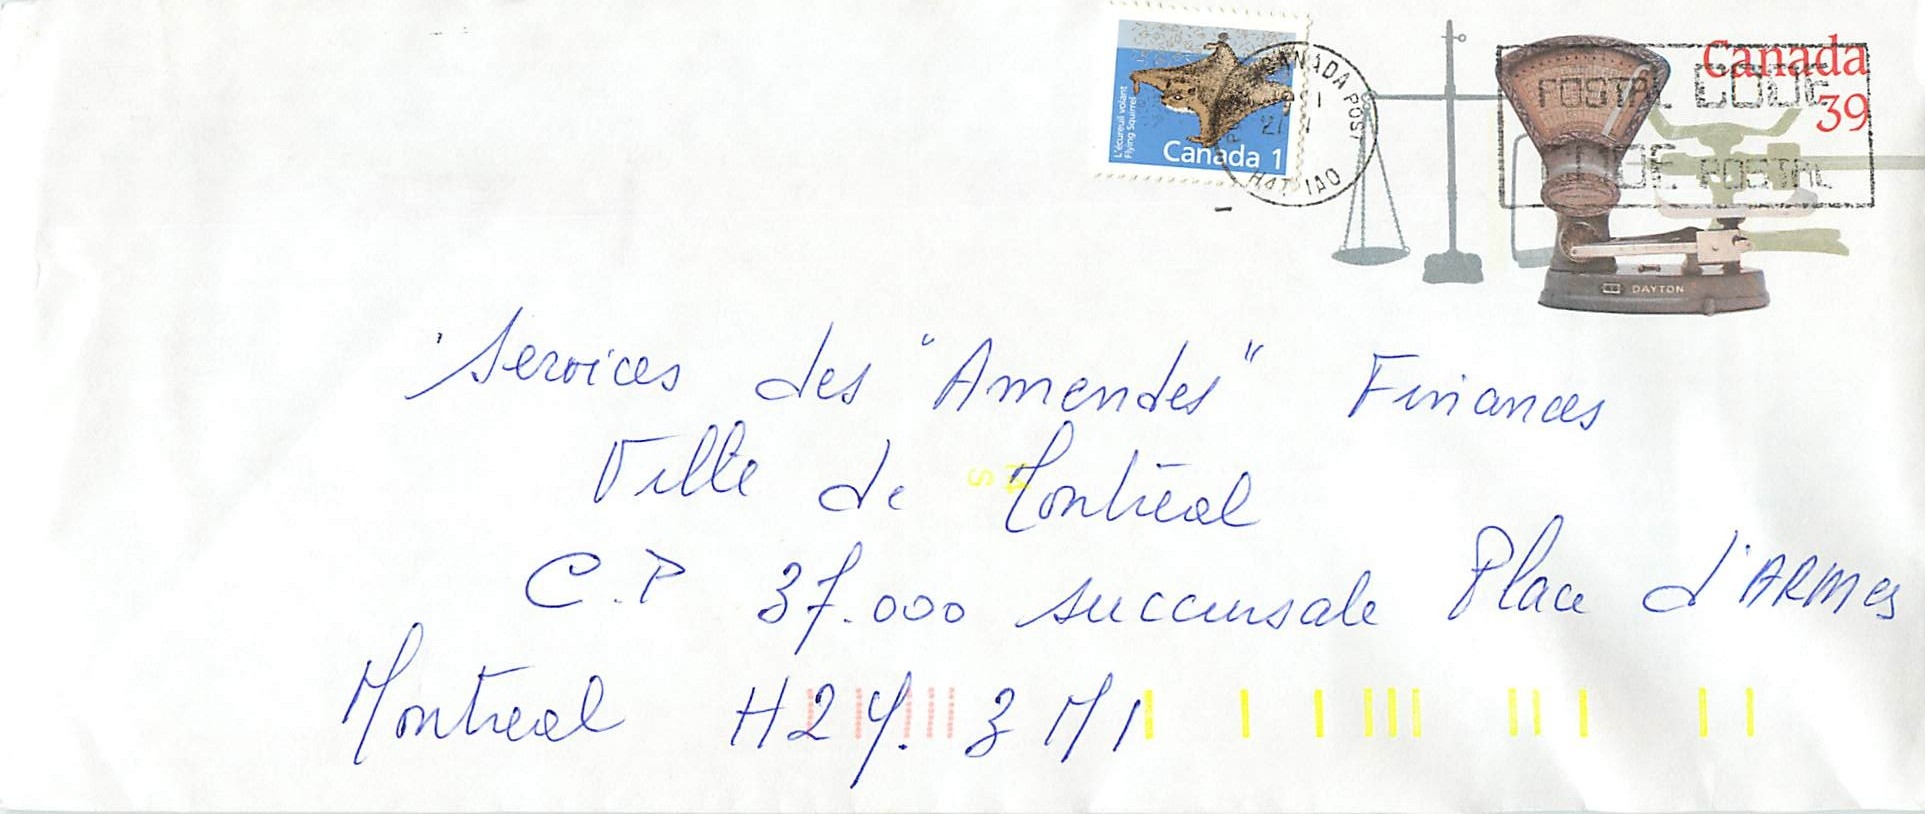 Canada
39
L'écureuil volant
Flying Squirrel
Canada 1
CANADA POST
H4T 1A0
POSTAL CODE
CODE POSTAL
DAYTON
Services des "Amendes" Finances
Ville de Montréal
C.P 37.000 succursale Place d'ARMes
Montreal H2Y. 3M1